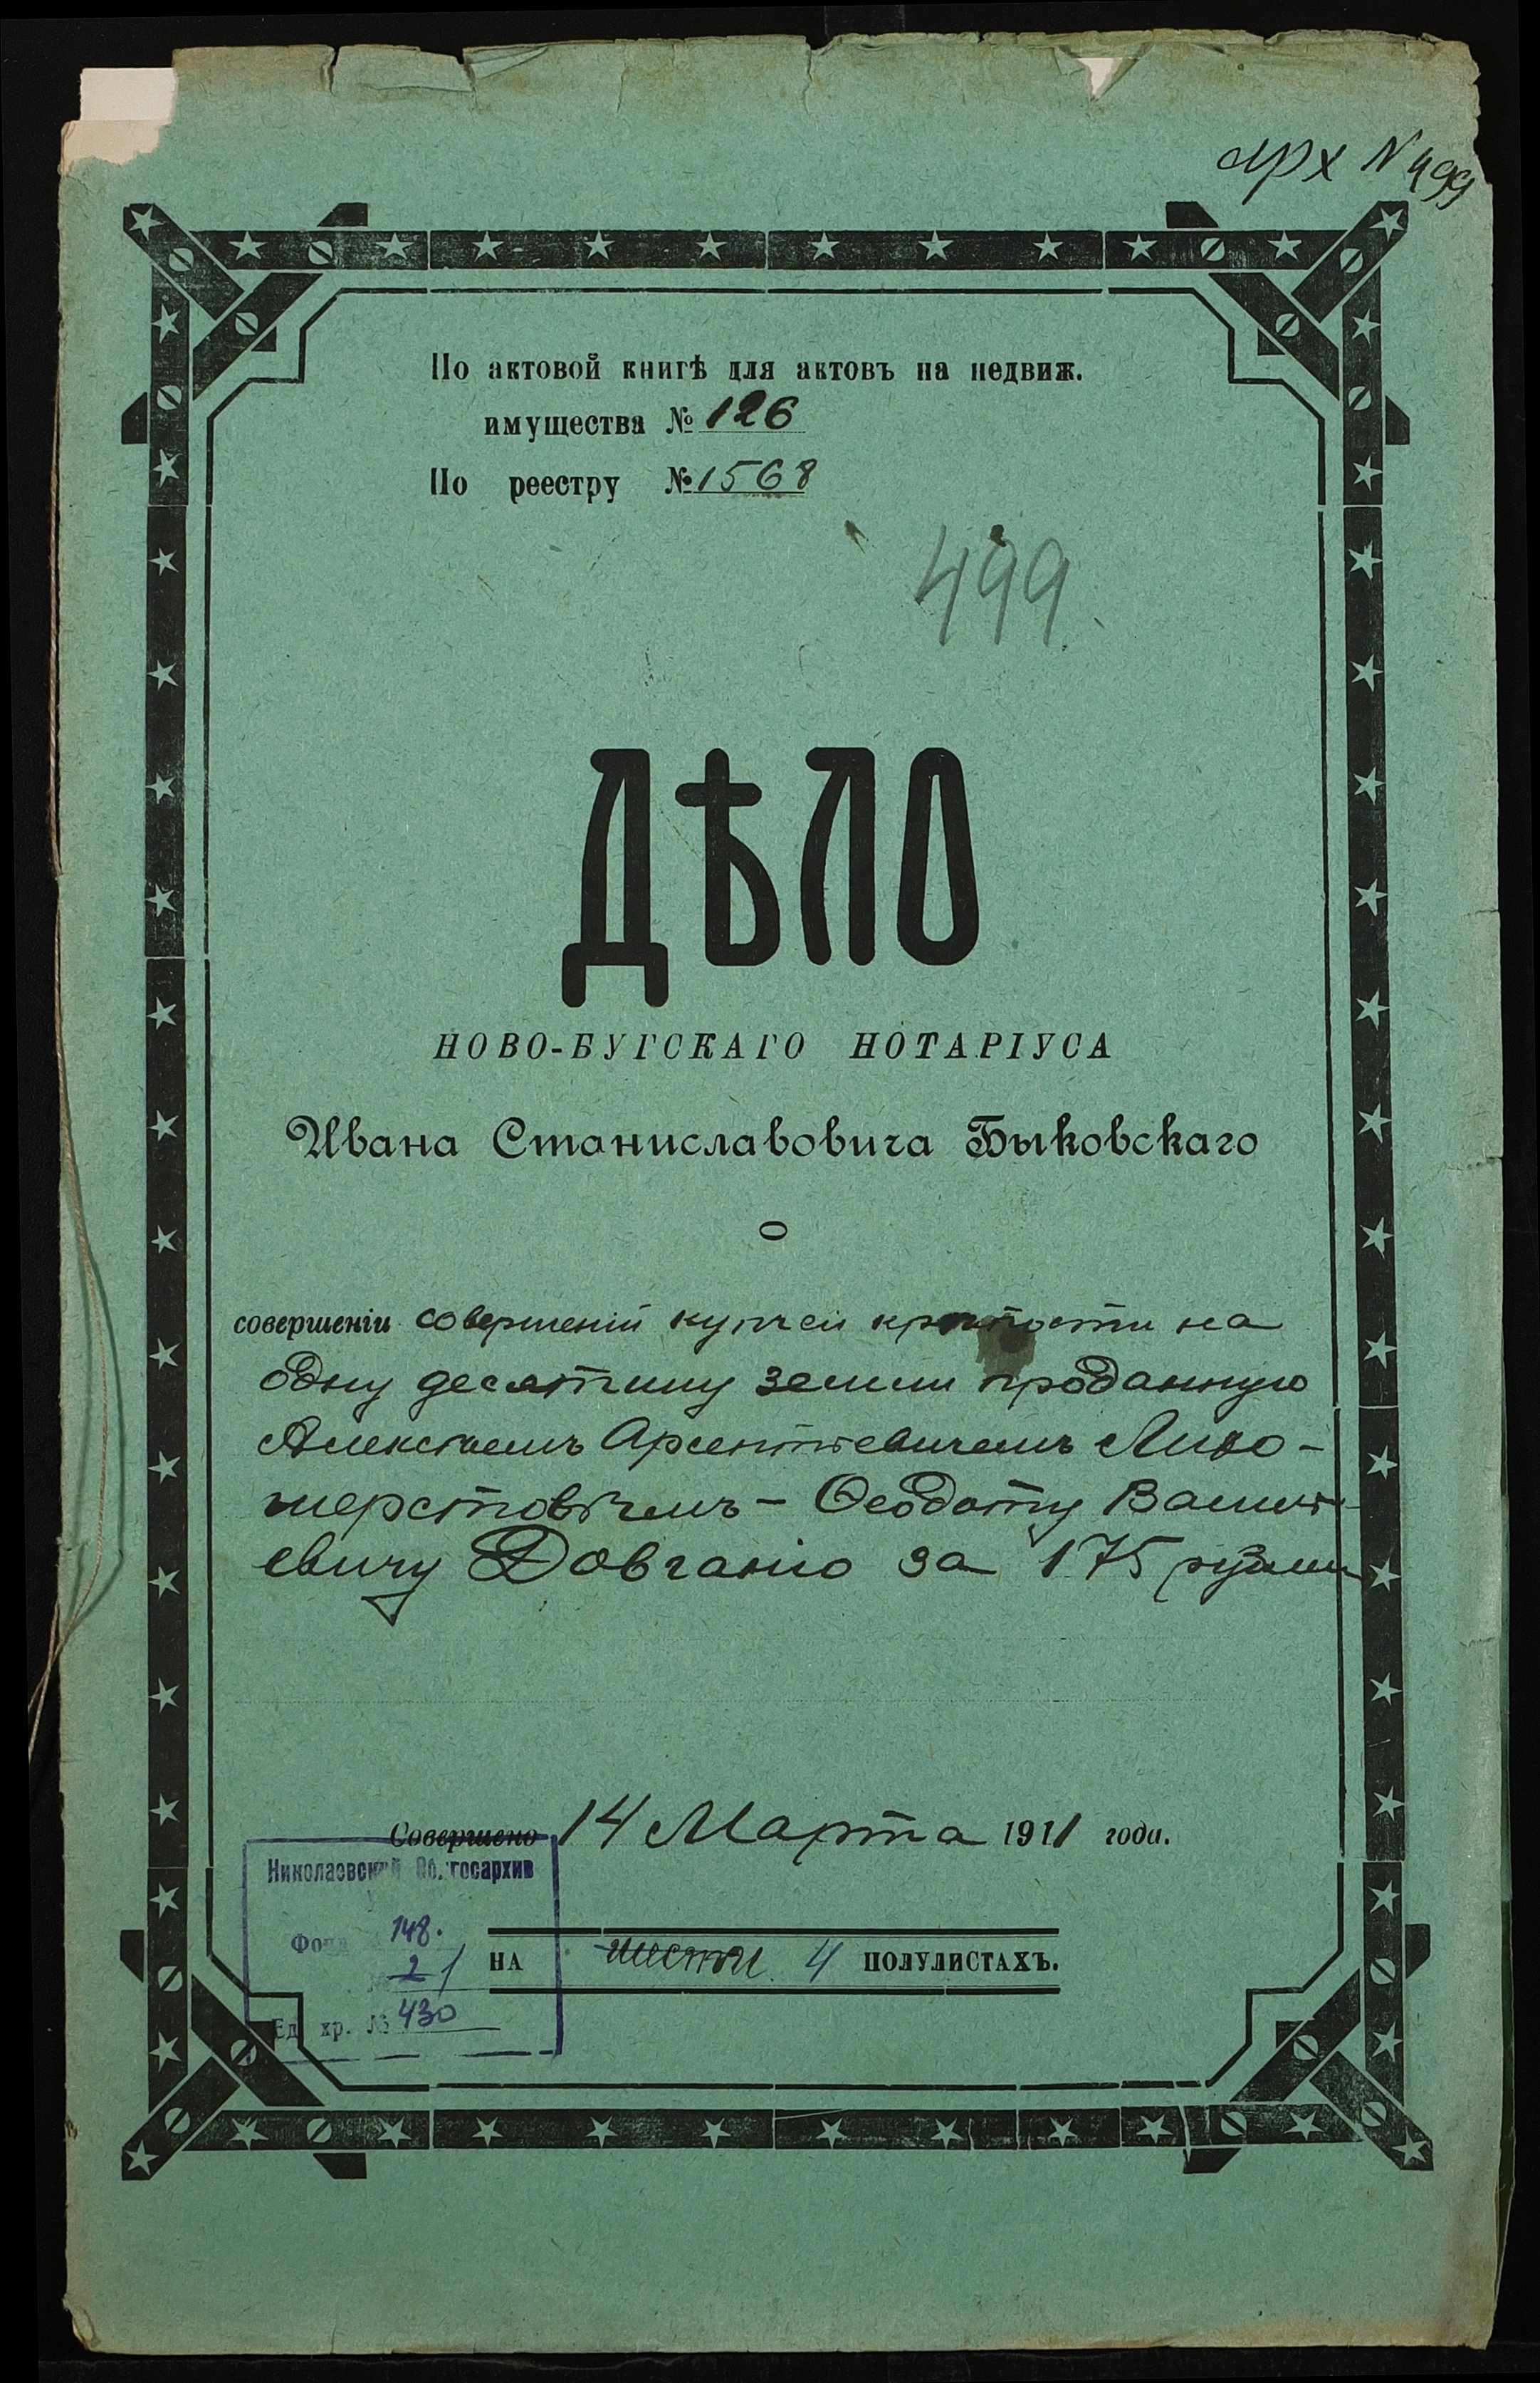 арх N 499
По актовой книгѣ для актовъ на недвиж.
имущества № 126
По реестру № 1568
499.
ДѢЛО
НОВО-БУГСКАГО НОТАРІУСА
Ивана Станиславовича Быковскаго
О
совершеніи совершеній купчей крѣпости на
одну десятину земли проданную
Алексѣемъ Арсентьевичемъ Лихо-
шерстовымъ - Ѳеодоту Василь-
евичу Довганю за 175 рублей
Совершено 14 Марта 1911 года.
Николаевский Обл.госархив
Фонд 148.
21
НА шести 4 ПОЛУЛИСТАХЪ.
Ед. хр. № 430